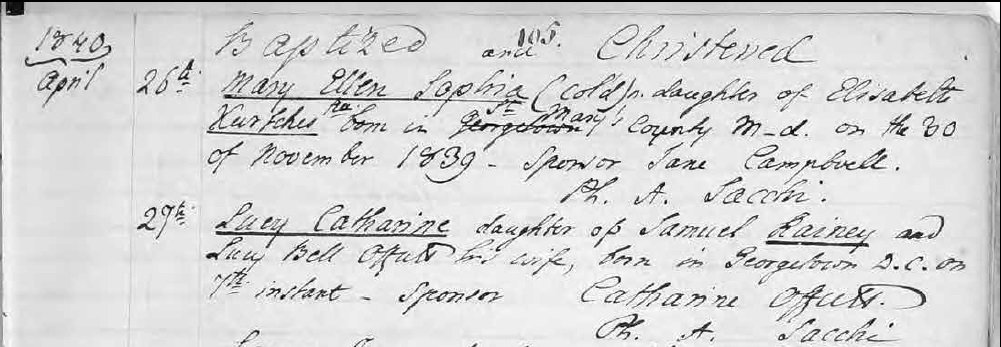 105.
1840 Baptized and Christened
April 26th Mary Ellen Sophia (Cold) daughter of Elisabeth
born in Georgetown St Mary's County M-d. on the 30
of November 1839 - Sponsor Jane Campbell.
Ph. A. Sacchi.
27th Lucy Catharine daughter of Samuel Rainey and
Lucy Bell Offutt his wife, born in Georgetown D.C. on
7th instant - Sponsor Catharine Offutt.
Ph. A. Sacchi